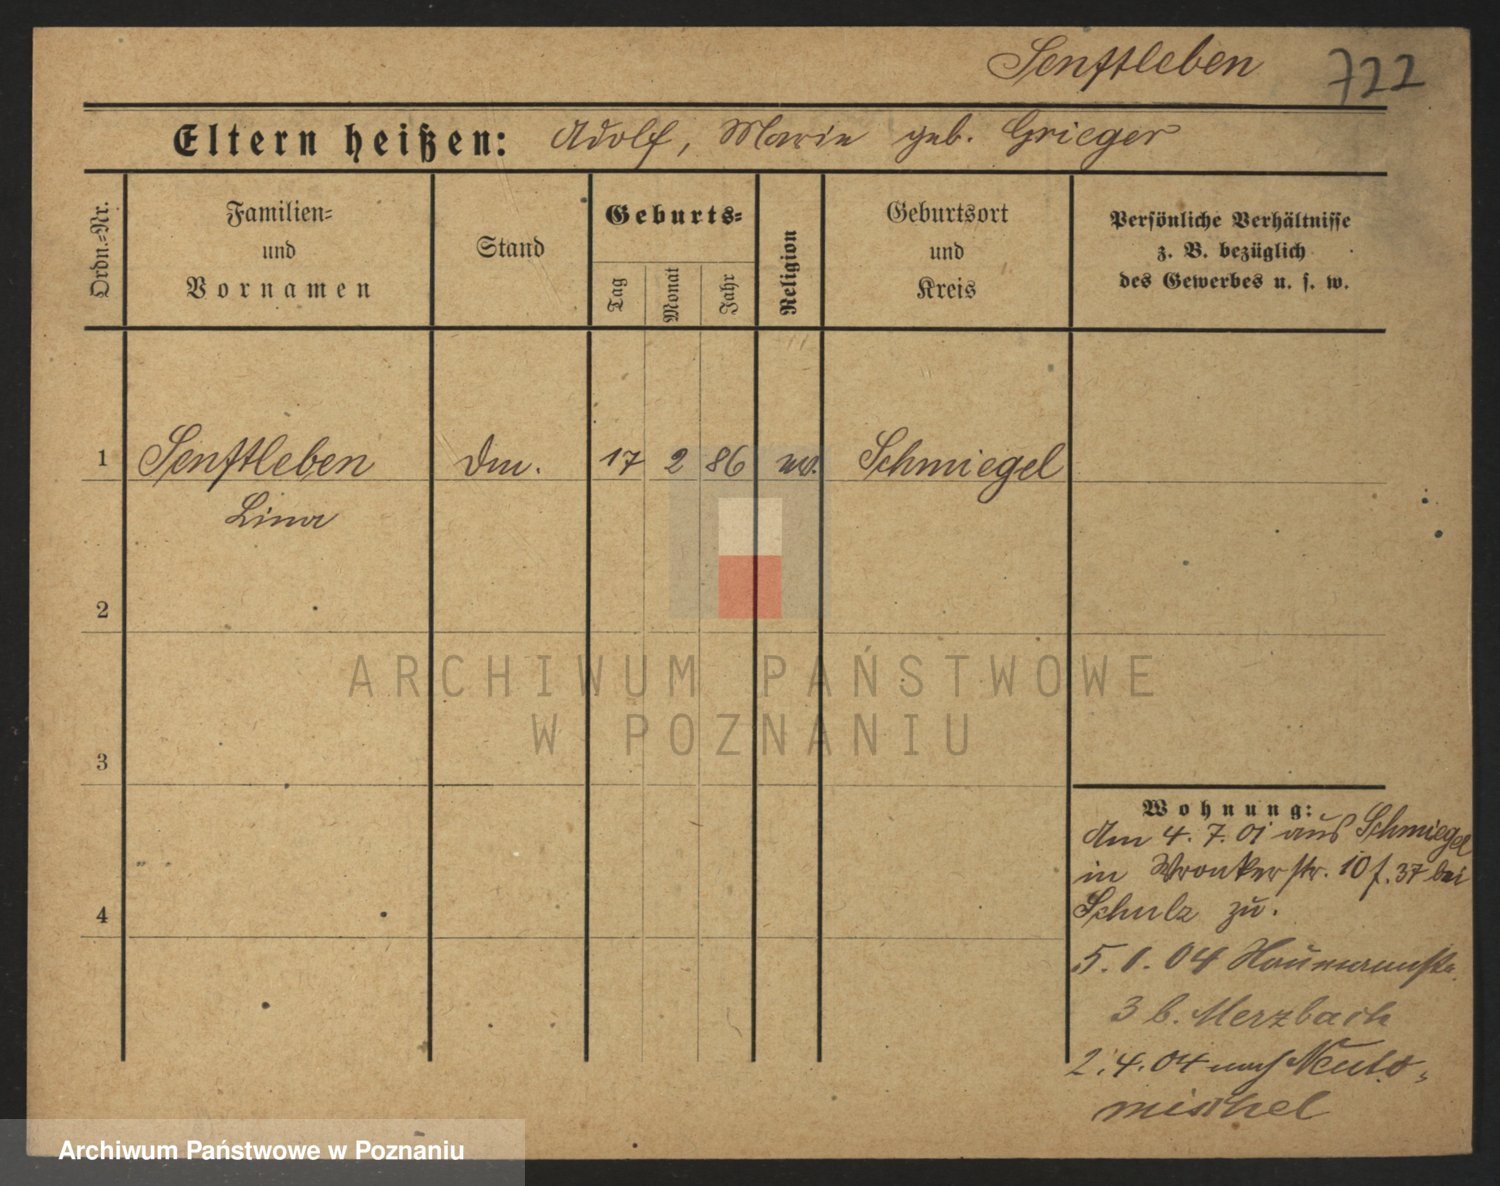 Senftleben 722
Eltern heißen: Adolf, Marie geb. Grieger
Ordn.-Nr.
Familien-
und
Vornamen
Stand
Geburts-
Tag
Monat
Jahr
Religion
Geburtsort
und
Kreis
Persönliche Verhältnisse
z. B. bezüglich
des Gewerbes u. s. w.
1 Senftleben Dm. 17 2 86 ev. Schmiegel
Lina
2
3
4
ARCHIWUM PAŃSTWOWE
W POZNANIU
Wohnung:
Am 4. 7. 01 aus Schmiegel
in Wronkerstr. 10 f. 37 bei
Schulz zu.
5. 1. 04 Naumannstr.
3 b. Merzbach
2. 4. 04 nach Neuto-
mischel
Archiwum Państwowe w Poznaniu